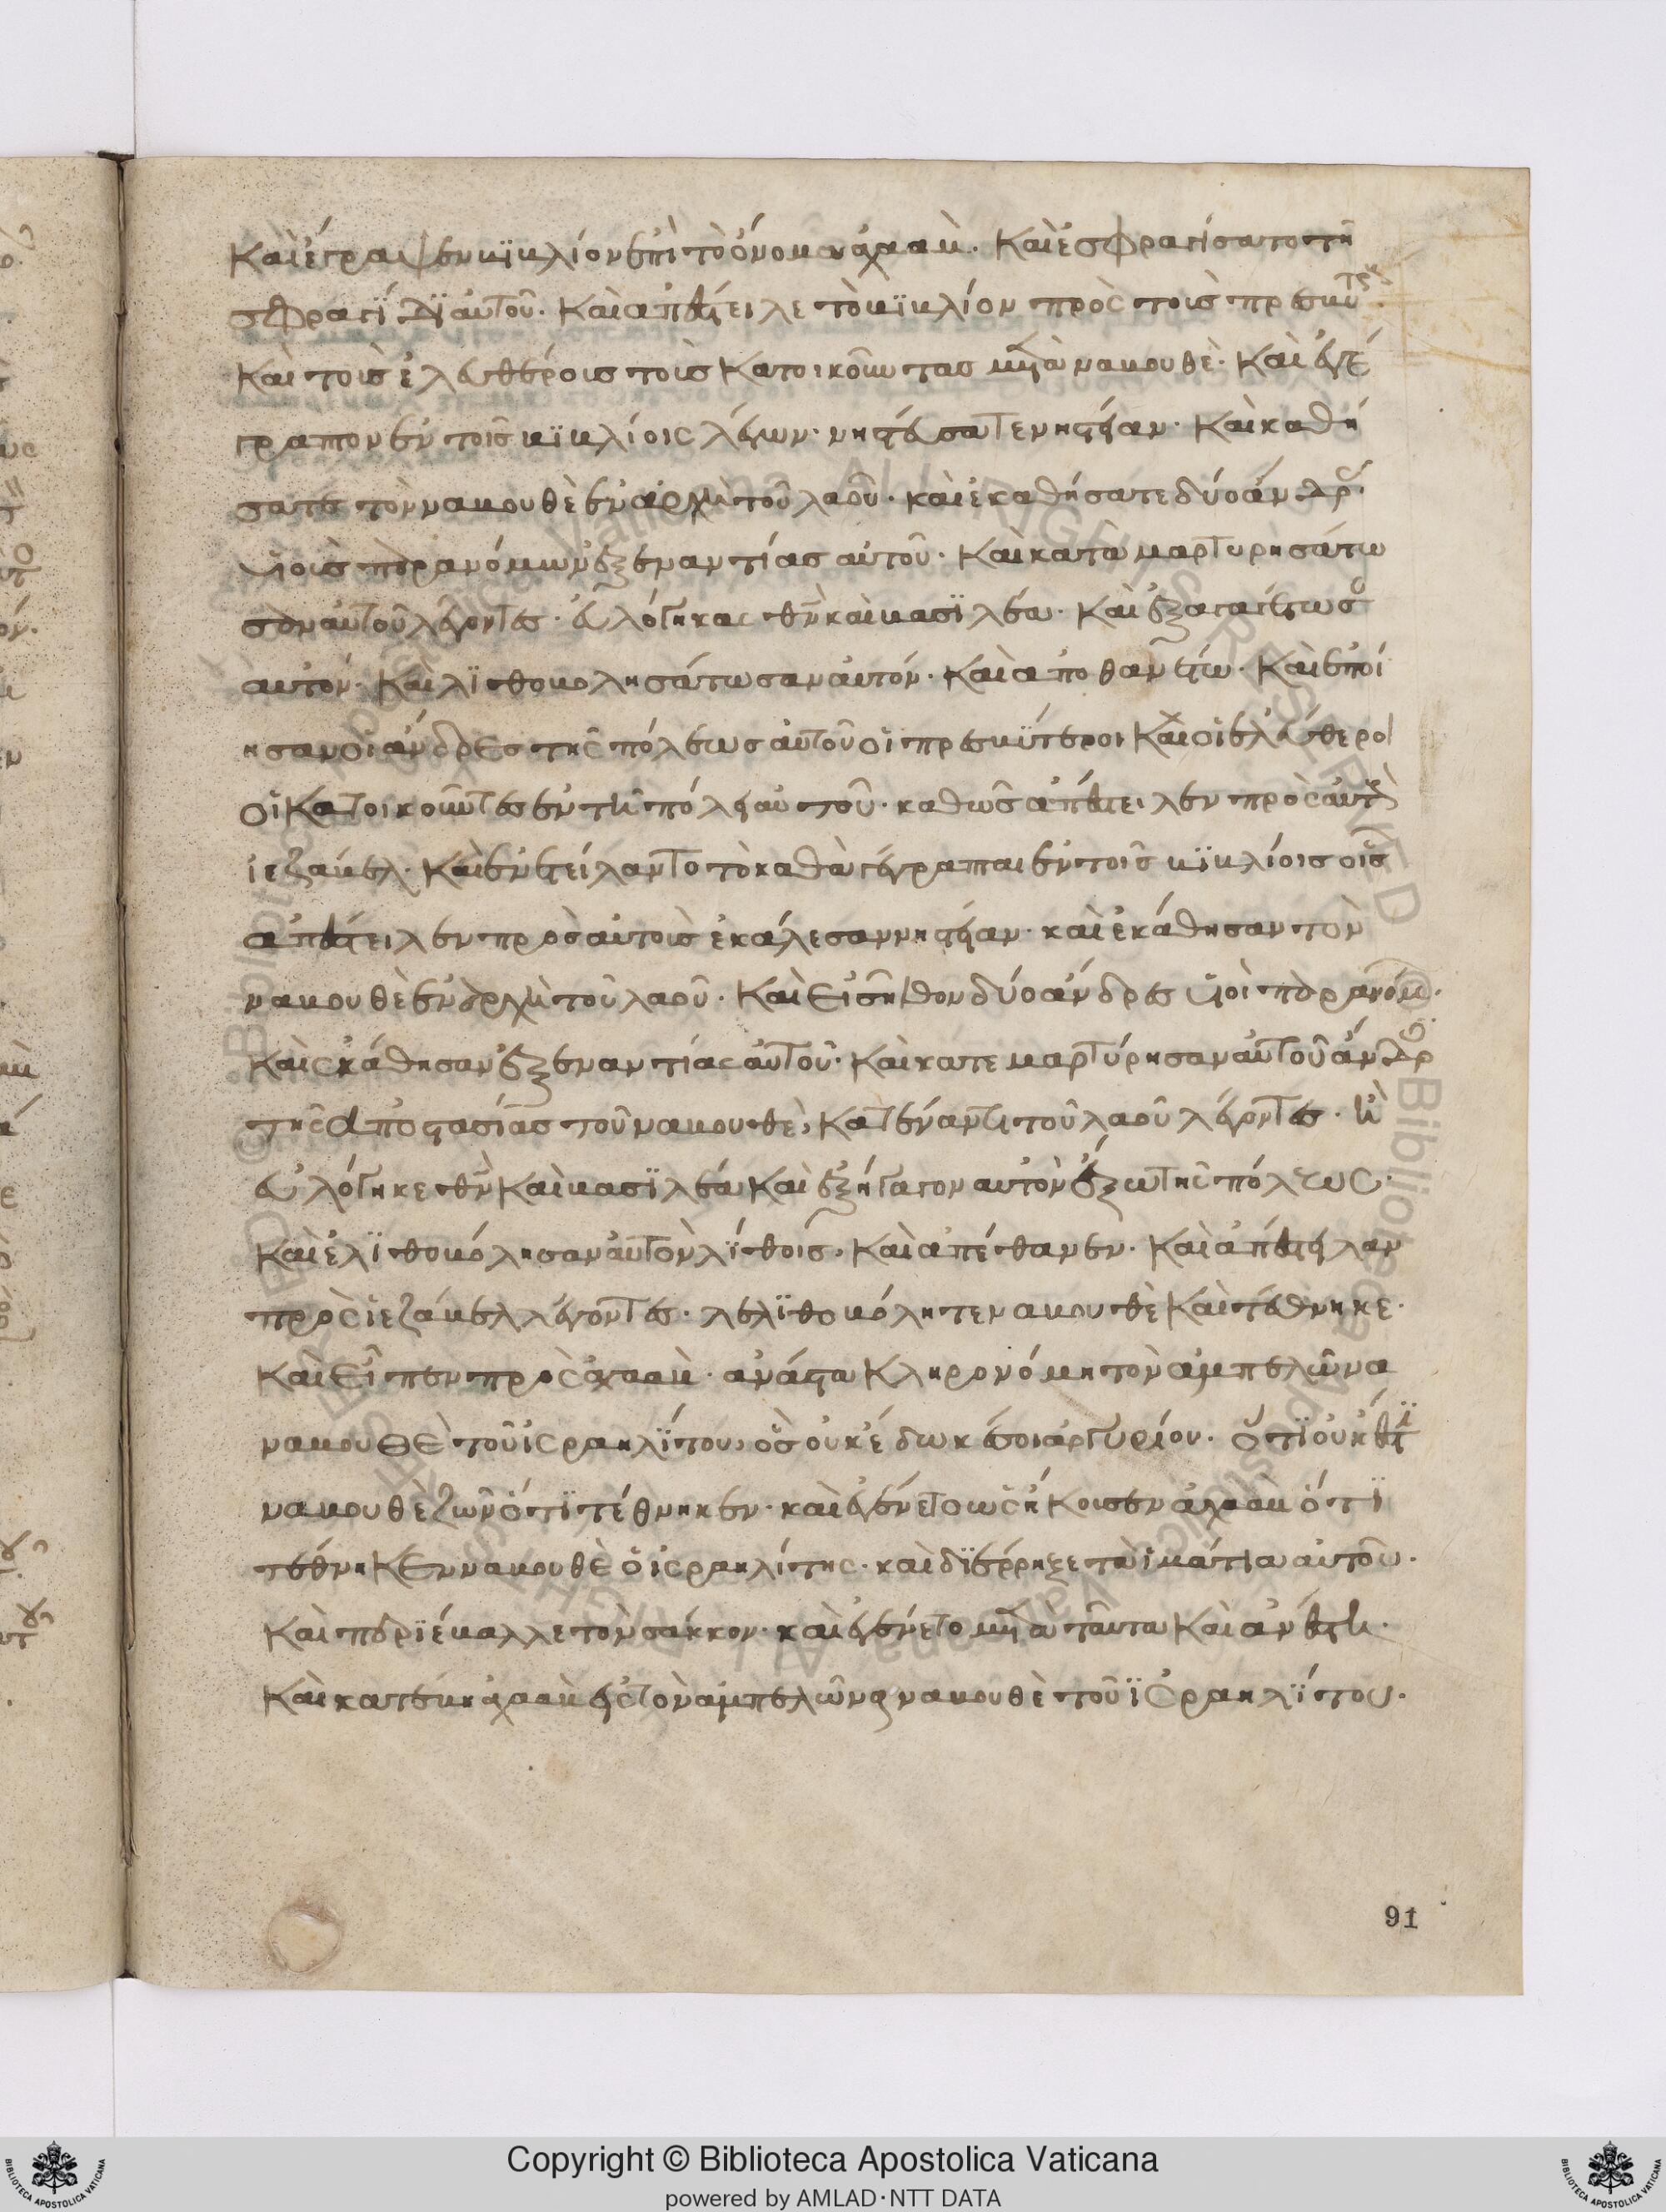 Καὶ ἔγραψεν βϊβλίον ἐπὶ τὸ ὄνομα ἀχαάβ. Καὶ ἐσφραγίσατο τῆ
σφραγίδϊ αὐτοῦ. Καὶ ἀπέστειλε τὸ βϊβλίον πρὸς τοὺς πρεσβυτέρ
Καὶ τοὺς ἐλευθέρους τοὺς Κατοικοῦντας μετὰ ναβουθέ. Καὶ ἐγέ
γραπτον ἐν τοῖς βϊβλίοις λέγων· νηστεύσατε νηστείαν· Καὶ καθή
σατε τὸν ναβουθὲ ἐν ἀρχῆ τοῦ λαοῦ. καὶ ἐκαθήσατε δύο ἄνδρ
υἱοὺς παρανόμων ἐξεναντίας αὐτοῦ. Καὶ καταμαρτυρησάτω
σαν αὐτοῦ λέγοντες. εὐλόγηκας θν καὶ βασϊλέα. Καὶ ἐξαγαγέτωσ
αὐτόν. Καὶ λϊθοβολησάτωσαν αὐτόν. Καὶ ἀποθανέτω. Καὶ ἐποί
ησαν οἱ ἄνδρες τῆς πόλεως αὐτοῦ οἱ πρεσβύτεροι Καὶ οἱ ἐλεύθεροι
οἱ Κατοικοῦντες ἐν τῆ πόλει αὐτοῦ. καθὼς ἀπέστειλεν πρὸς αὐτοὺς
ἰεζάβελ. Καὶ ἐνετείλαντο τὸ καθὰ γέγραπται ἐν τοῖς βϊβλίοις οἷς
ἀπέστειλεν πρὸς αὐτοὺς ἐκάλεσαν νηστείαν· καὶ ἐκάθησαν τὸν
ναβουθὲ ἐν ἀρχῆ τοῦ λαοῦ. Καὶ εἰσῆλθον δύο ἄνδρες υἱοὶ παρανόμ.
Καὶ ἐκάθησαν ἐξεναντίας αὐτοῦ. Καὶ κατεμαρτύρησαν αὐτοῦ ἄνδρ
τῆς ἀποστασίας τοῦ ναβουθὲ, Κατέναντι τοῦ λαοῦ λέγοντες.
εὐλόγηκε θν Καὶ βασϊλέα Καὶ ἐξήγαγον αὐτὸν ἔξω τῆς πόλεως.
Καὶ ἐλϊθοβόλησαν αὐτὸν λίθοις. Καὶ ἀπέθανεν. Καὶ ἀπέστειλαν
πρὸς ἰεζάβελ λέγοντες. λελϊθοβόληται ναβουθὲ Καὶ τέθνηκε.
Καὶ εἶπεν πρὸς ἀχαάβ. ἀνάστα Κληρονόμη τὸν ἀμπελῶνα
ναβουθὲ τοῦ ἰσραηλΐτου, ὃς οὐκ ἔδωκέ σοι ἀργυρίου. ὅτϊ οὐκ ἔστϊ
ναβουθὲ ζῶν ὅτϊ τέθνηκεν. καὶ ἐγένετο ὡς ἤκουσεν ἀχαὰβ ὅτϊ
τέθνηκεν ναβουθὲ ὁ ἰσραηλίτης. καὶ δϊέρρηξε τὰ ἱμάτια αὐτοῦ.
Καὶ περϊέβαλλε τὸν σάκκον. καὶ ἐγένετο μετὰ ταῦτα Καὶ ἀνέστη.
Καὶ κατέβη ἀχαὰβ εἰς τὸν ἀμπελῶνα ναβουθὲ τοῦ ϊσραηλΐτου.
91
Copyright © Biblioteca Apostolica Vaticana
powered by AMLAD·NTT DATA